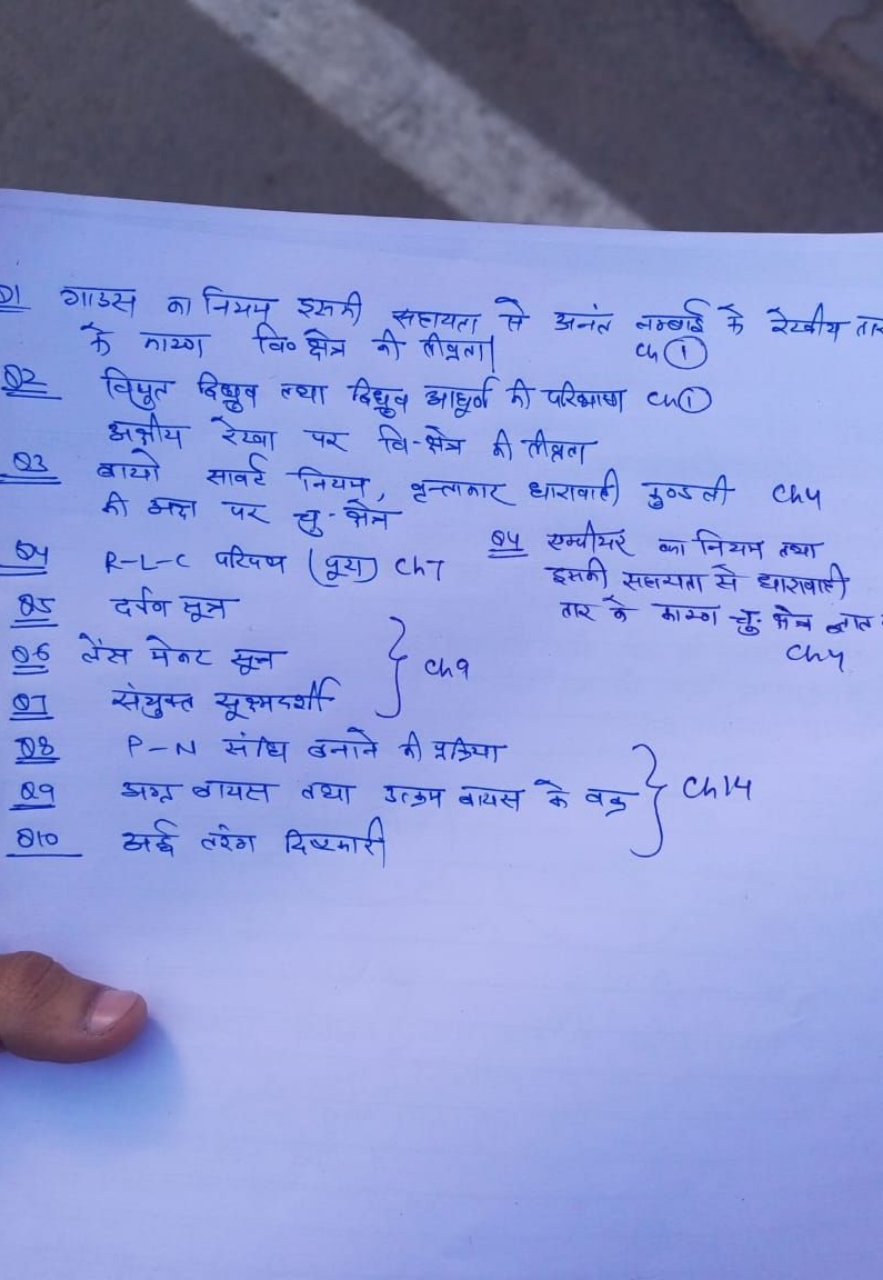 Q1 गाउस का नियम इसकी सहायता से अनंत लम्बाई के रेखीय तार
के कारण वि० क्षेत्र की तीव्रता| Ch ①
Q2 विधुत द्विध्रुव तथा द्विध्रुव आधूर्ण की परिभाषा Ch①
अक्षीय रेखा पर वि-क्षेत्र की तीव्रता
Q3 बायो सावर्ट नियम, वृत्ताकार धारावाही कुण्डली Ch4
की अक्ष पर चु-क्षेत्र
Q4 R-L-C परिपथ (पूरा) Ch7
Q4 एम्पीयर का नियम तथा
इसकी सहायता से धारावाही
तार के कारण चु. क्षेत्र ज्ञात
Ch4
Q5 दर्पण सूत्र
Q6 लैंस मेकर सूत्र
Q7 संयुक्त सूक्ष्मदर्शी
} Ch9
Q8 P-N संधि बनाने की प्रक्रिया
Q9 अग्र बायस तथा उत्क्रम बायस के वक्र
Q10 अर्द्ध तरंग दिष्टकारी
} Ch14